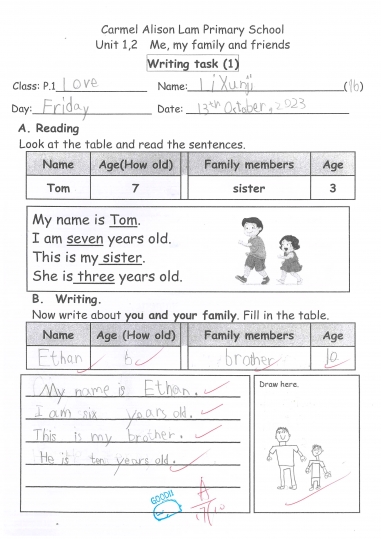 Carmel Alison Lam Primary School
Unit 1,2 Me, my family and friends
Writing task (1)
Class: P.1 Love Name: Li Xunji (16)
Day: Friday Date: 13th October, 2023
A. Reading
Look at the table and read the sentences.
Name Age(How old) Family members Age
Tom 7 sister 3
My name is Tom.
I am seven years old.
This is my sister.
She is three years old.
B. Writing.
Now write about you and your family. Fill in the table.
Name Age (How old) Family members Age
Ethan 6 brother 10
My name is Ethan.
I am six years old.
This is my brother.
He is ten years old.
Draw here.
GOOD!!
A
17/10